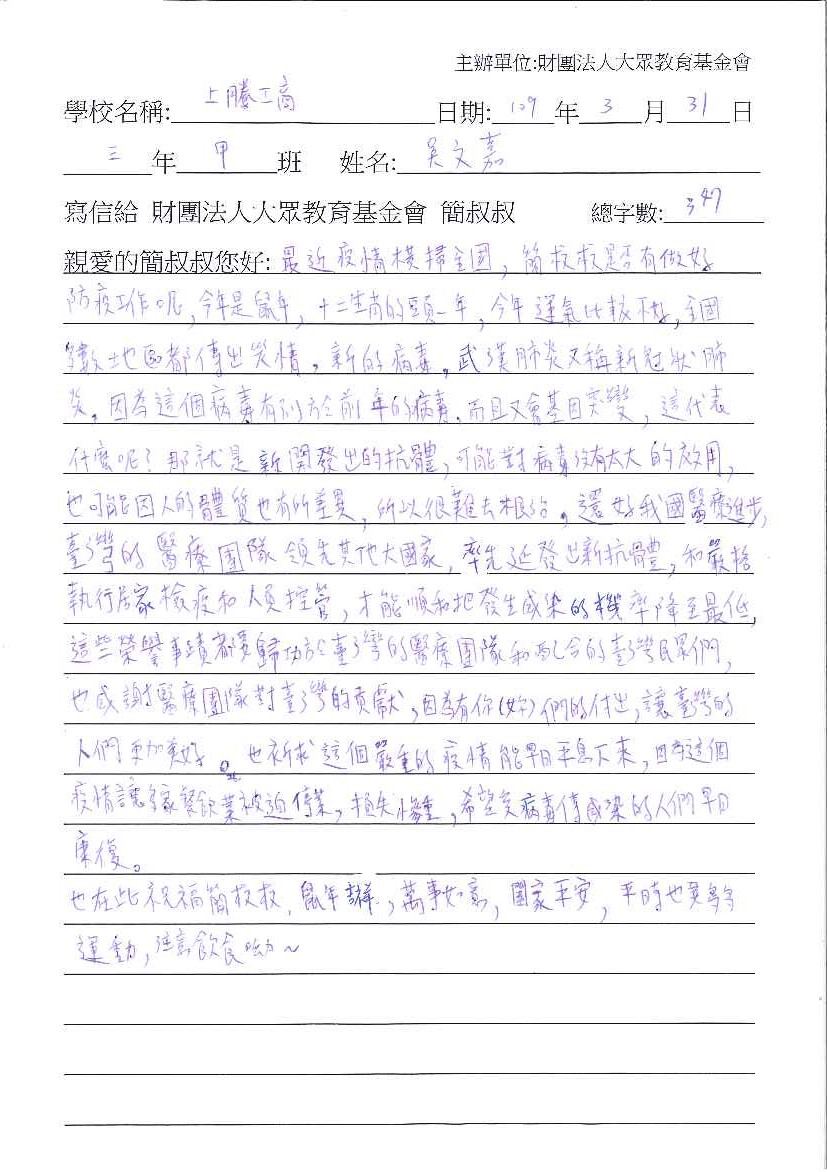 主辦單位:財團法人大眾教育基金會
學校名稱: 上騰工商 日期: 109 年 3 月 31 日
三 年 甲 班 姓名: 吳文嘉
寫信給 財團法人大眾教育基金會 簡叔叔 總字數: 347
親愛的簡叔叔您好: 最近疫情橫掃全國, 簡叔叔是否有做好
防疫工作呢, 今年是鼠年, 十二生肖的頭一年, 今年運氣比較不好, 全國
多數地區都傳出災情, 新的病毒, 武漢肺炎又稱新冠狀肺
炎, 因為這個病毒有別於前年的病毒, 而且又會基因突變, 這代表
什麼呢? 那就是新開發出的抗體, 可能對病毒沒有太大的效用,
也可能因人的體質也有所差異, 所以很難去根治。還好我國醫療進步,
臺灣的醫療團隊領先其他大國家, 率先延發出新抗體, 和嚴格
執行居家檢疫和人員控管, 才能順利把發生感染的機率降至最低,
這些榮譽事蹟都要歸功於臺灣的醫療團隊和配合的臺灣民眾們,
也感謝醫療團隊對臺灣的貢獻, 因為有你(妳)們的付出, 讓臺灣的
人們更加美好。也祈求這個嚴重的疫情能早日平息下來, 因為這個
疫情讓多家餐飲業被迫停業, 損失慘重, 希望受病毒傳感染的人們早日
康復。
也在此祝福簡叔叔, 鼠年吉祥, 萬事如意, 闔家平安, 平時也要多多
運動, 注意飲食呦~